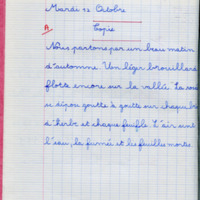 Mardi 13 Octobre
A
Copie
Nous partons par un beau matin
d'automne. Un léger brouillard
flotte encore sur la vallée. La
goutte à goutte sur chaque
d'herbe et chaque feuille. L'air sent
l'eau, la fumée et les feuilles mortes